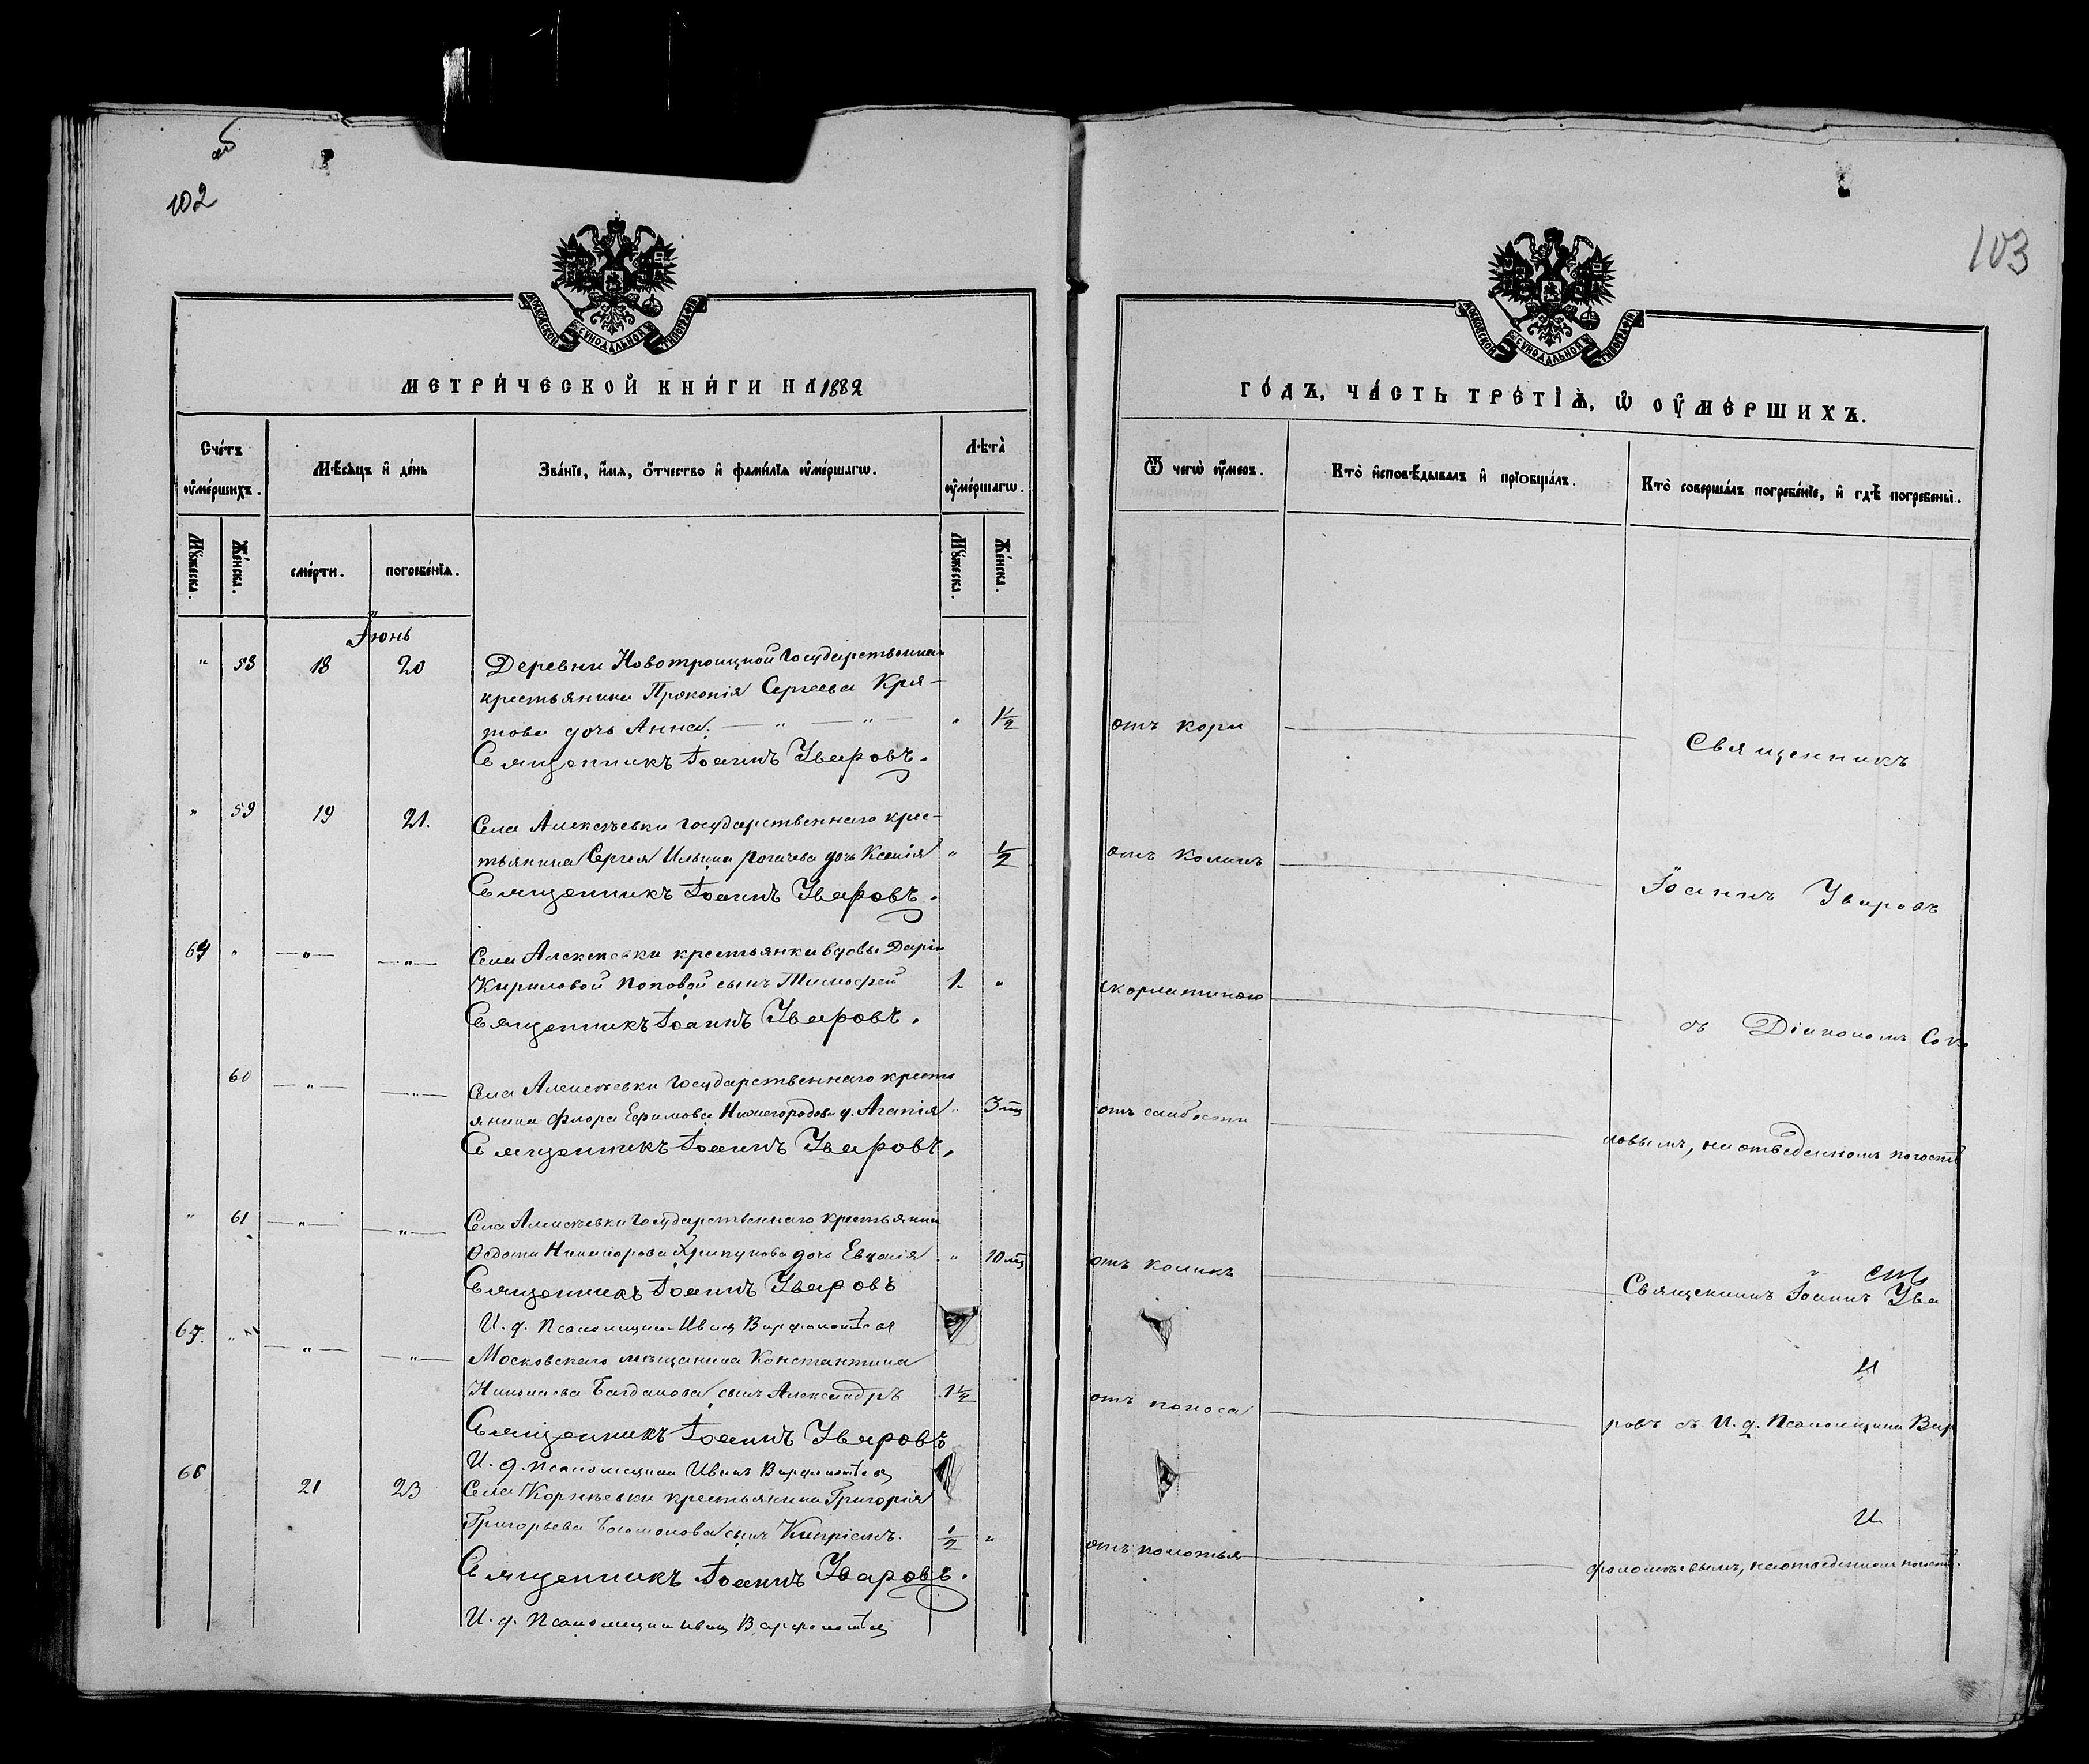 102
103
МОСКОВСКОЙ СѴНОДАЛЬНОЙ ТИПОГРАФІИ
МЕТРИ́ЧЕСКОЙ КНИ́ГИ НА 1882
Сче́тъ ᲂу҆ме́ршихъ.
Мѣ́сѧцъ и҆ де́нь
Зва́нїе, и҆́мѧ, ѻ҆́тчество и҆ фами́лїѧ ᲂу҆ме́ршагѡ.
Лѣ́та ᲂу҆ме́ршагѡ.
Мꙋ́жеска.
Же́нска.
сме́рти.
погребе́нїѧ.
Мꙋ́жеска.
Же́нска.
Іюнь
" 58 18 20 Деревни Новотроицкой Государственна
крестьянина Прокопія Сергеева Кря-
това дочь Анна. — " — " — " 1½
Священникъ Іоаннъ Уваровъ.
" 59 19 21. Села Алексѣевки Государственнаго крес-
тьянина Сергея Ильина Рогачева дочь Ксенія " ½
Священникъ Іоаннъ Уваровъ.
64 " —"— —"— Села Алексѣевки крестьянки вдовы Даріи
Кириловой Поповой сынъ Тимофей 1. "
Священникъ Іоаннъ Уваровъ.
60 —"— —"— Села Алексѣевки Государственнаго кресть
янина Флора Ефимова Нижегородова д. Агапія " 3 мц
Священникъ Іоаннъ Уваровъ.
" 61 —"— —"— Села Алексѣевки Государственнаго крестьянина
Ѳедота Никифорова Хрипунова дочь Евдокія " 10 мц
Священникъ Іоаннъ Уваровъ
И. д. Псаломщика Иван Варфоломѣев
65. " —"— —"— Московскаго мѣщанина Константина
Николаева Багданова сынъ Александръ 1½
Священникъ Іоаннъ Уваровъ
И. д. Псаломщика Иванъ Варфоломѣев
66 21 23 Села Корнѣевки крестьянина Григорія
Григорьева сынъ Кипріанъ. ½ "
Священникъ Іоаннъ Уваровъ.
И. д. Псаломщика Иван Варфоломѣев
МОСКОВСКОЙ СѴНОДАЛЬНОЙ ТИПОГРАФІИ
ГО́ДЪ, ЧА́СТЬ ТРЕ́ТІѦ, Ѡ҆ ОУ҆МЕ́РШИХЪ.
Ѿ чегѡ̀ ᲂу҆́меръ.
Кто̀ и҆сповѣ́дывалъ и҆ прїобща́лъ.
Кто̀ соверша́лъ погребе́нїе, и҆ гдѣ̀ погребены̀.
отъ кори
Священникъ
отъ коликъ
Іоаннъ Уваровъ
скорлатиною
съ Діакономъ Соко
отъ слабости
ловымъ, на отведенномъ погостѣ
отъ коликъ
Священникъ Іоаннъ Ува
отъ поноса
ровъ съ И. д. Псаломщика Вар
отъ колотья
фоломѣевымъ, на отведенномъ погостѣ.